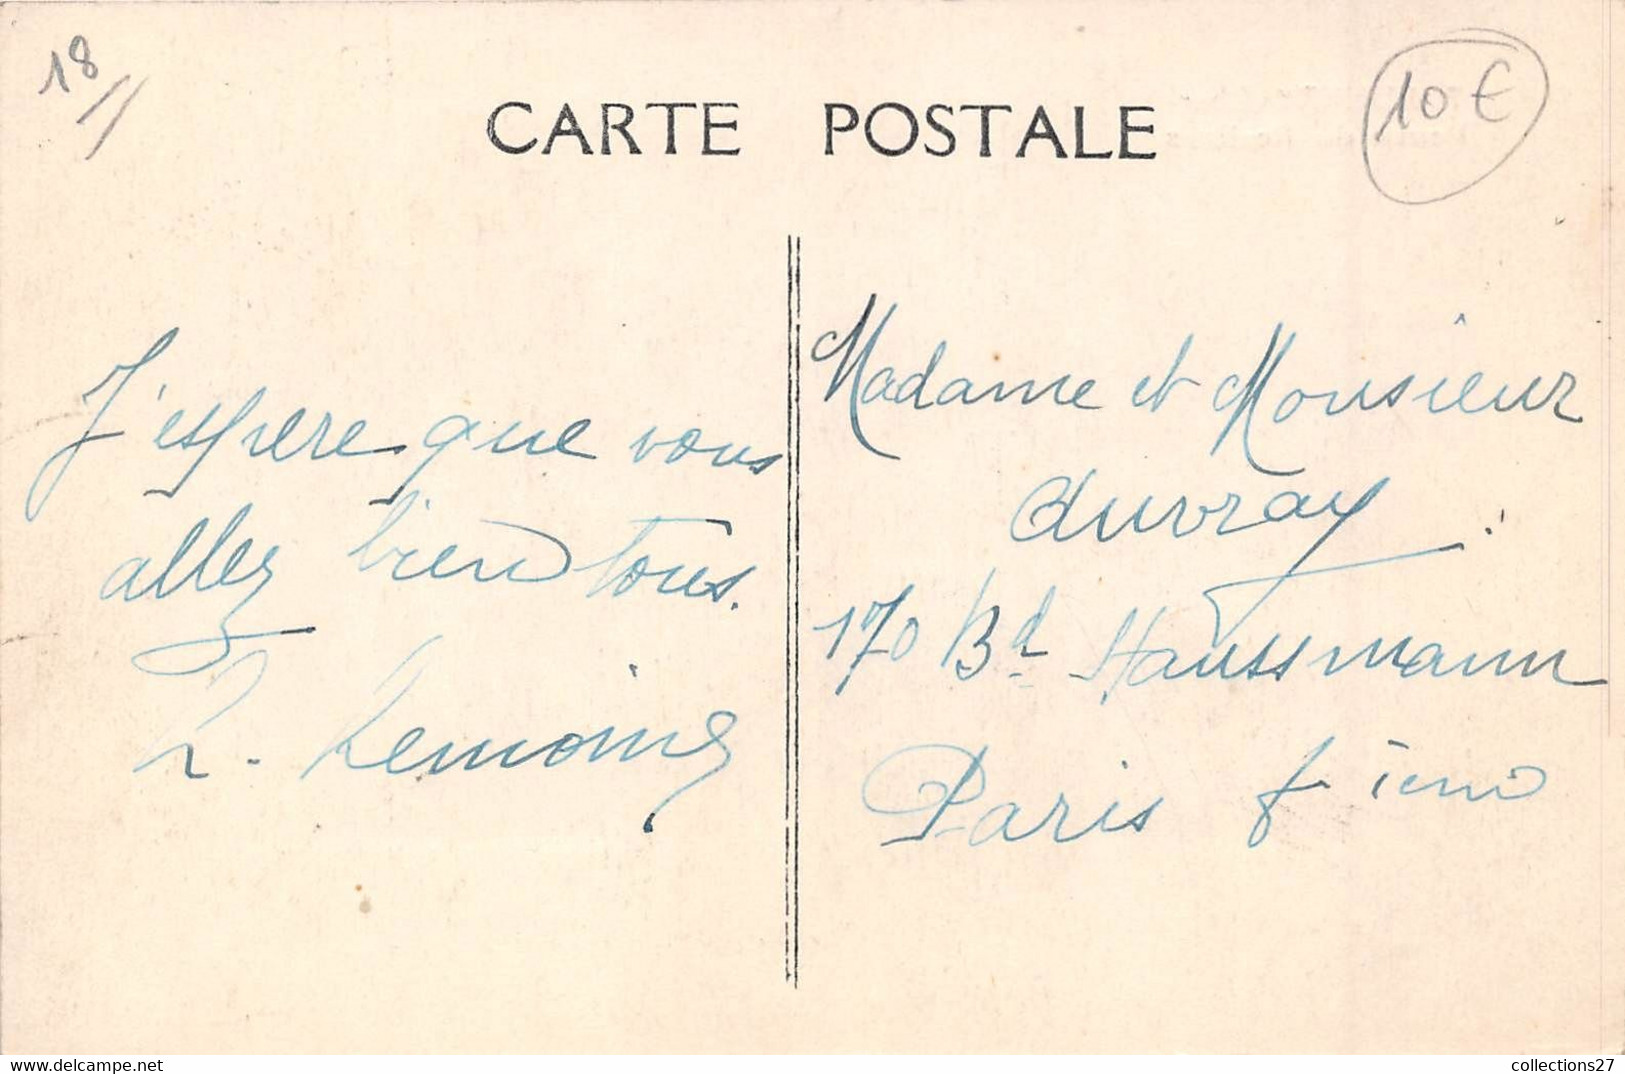 18
CARTE POSTALE
10 €
J'espere que vous
allez bien tous.
Lemoine
Madame et Monsieur
Auvray
170 Bd Haussmann
Paris 8 ième
www.delcampe.net
collections27